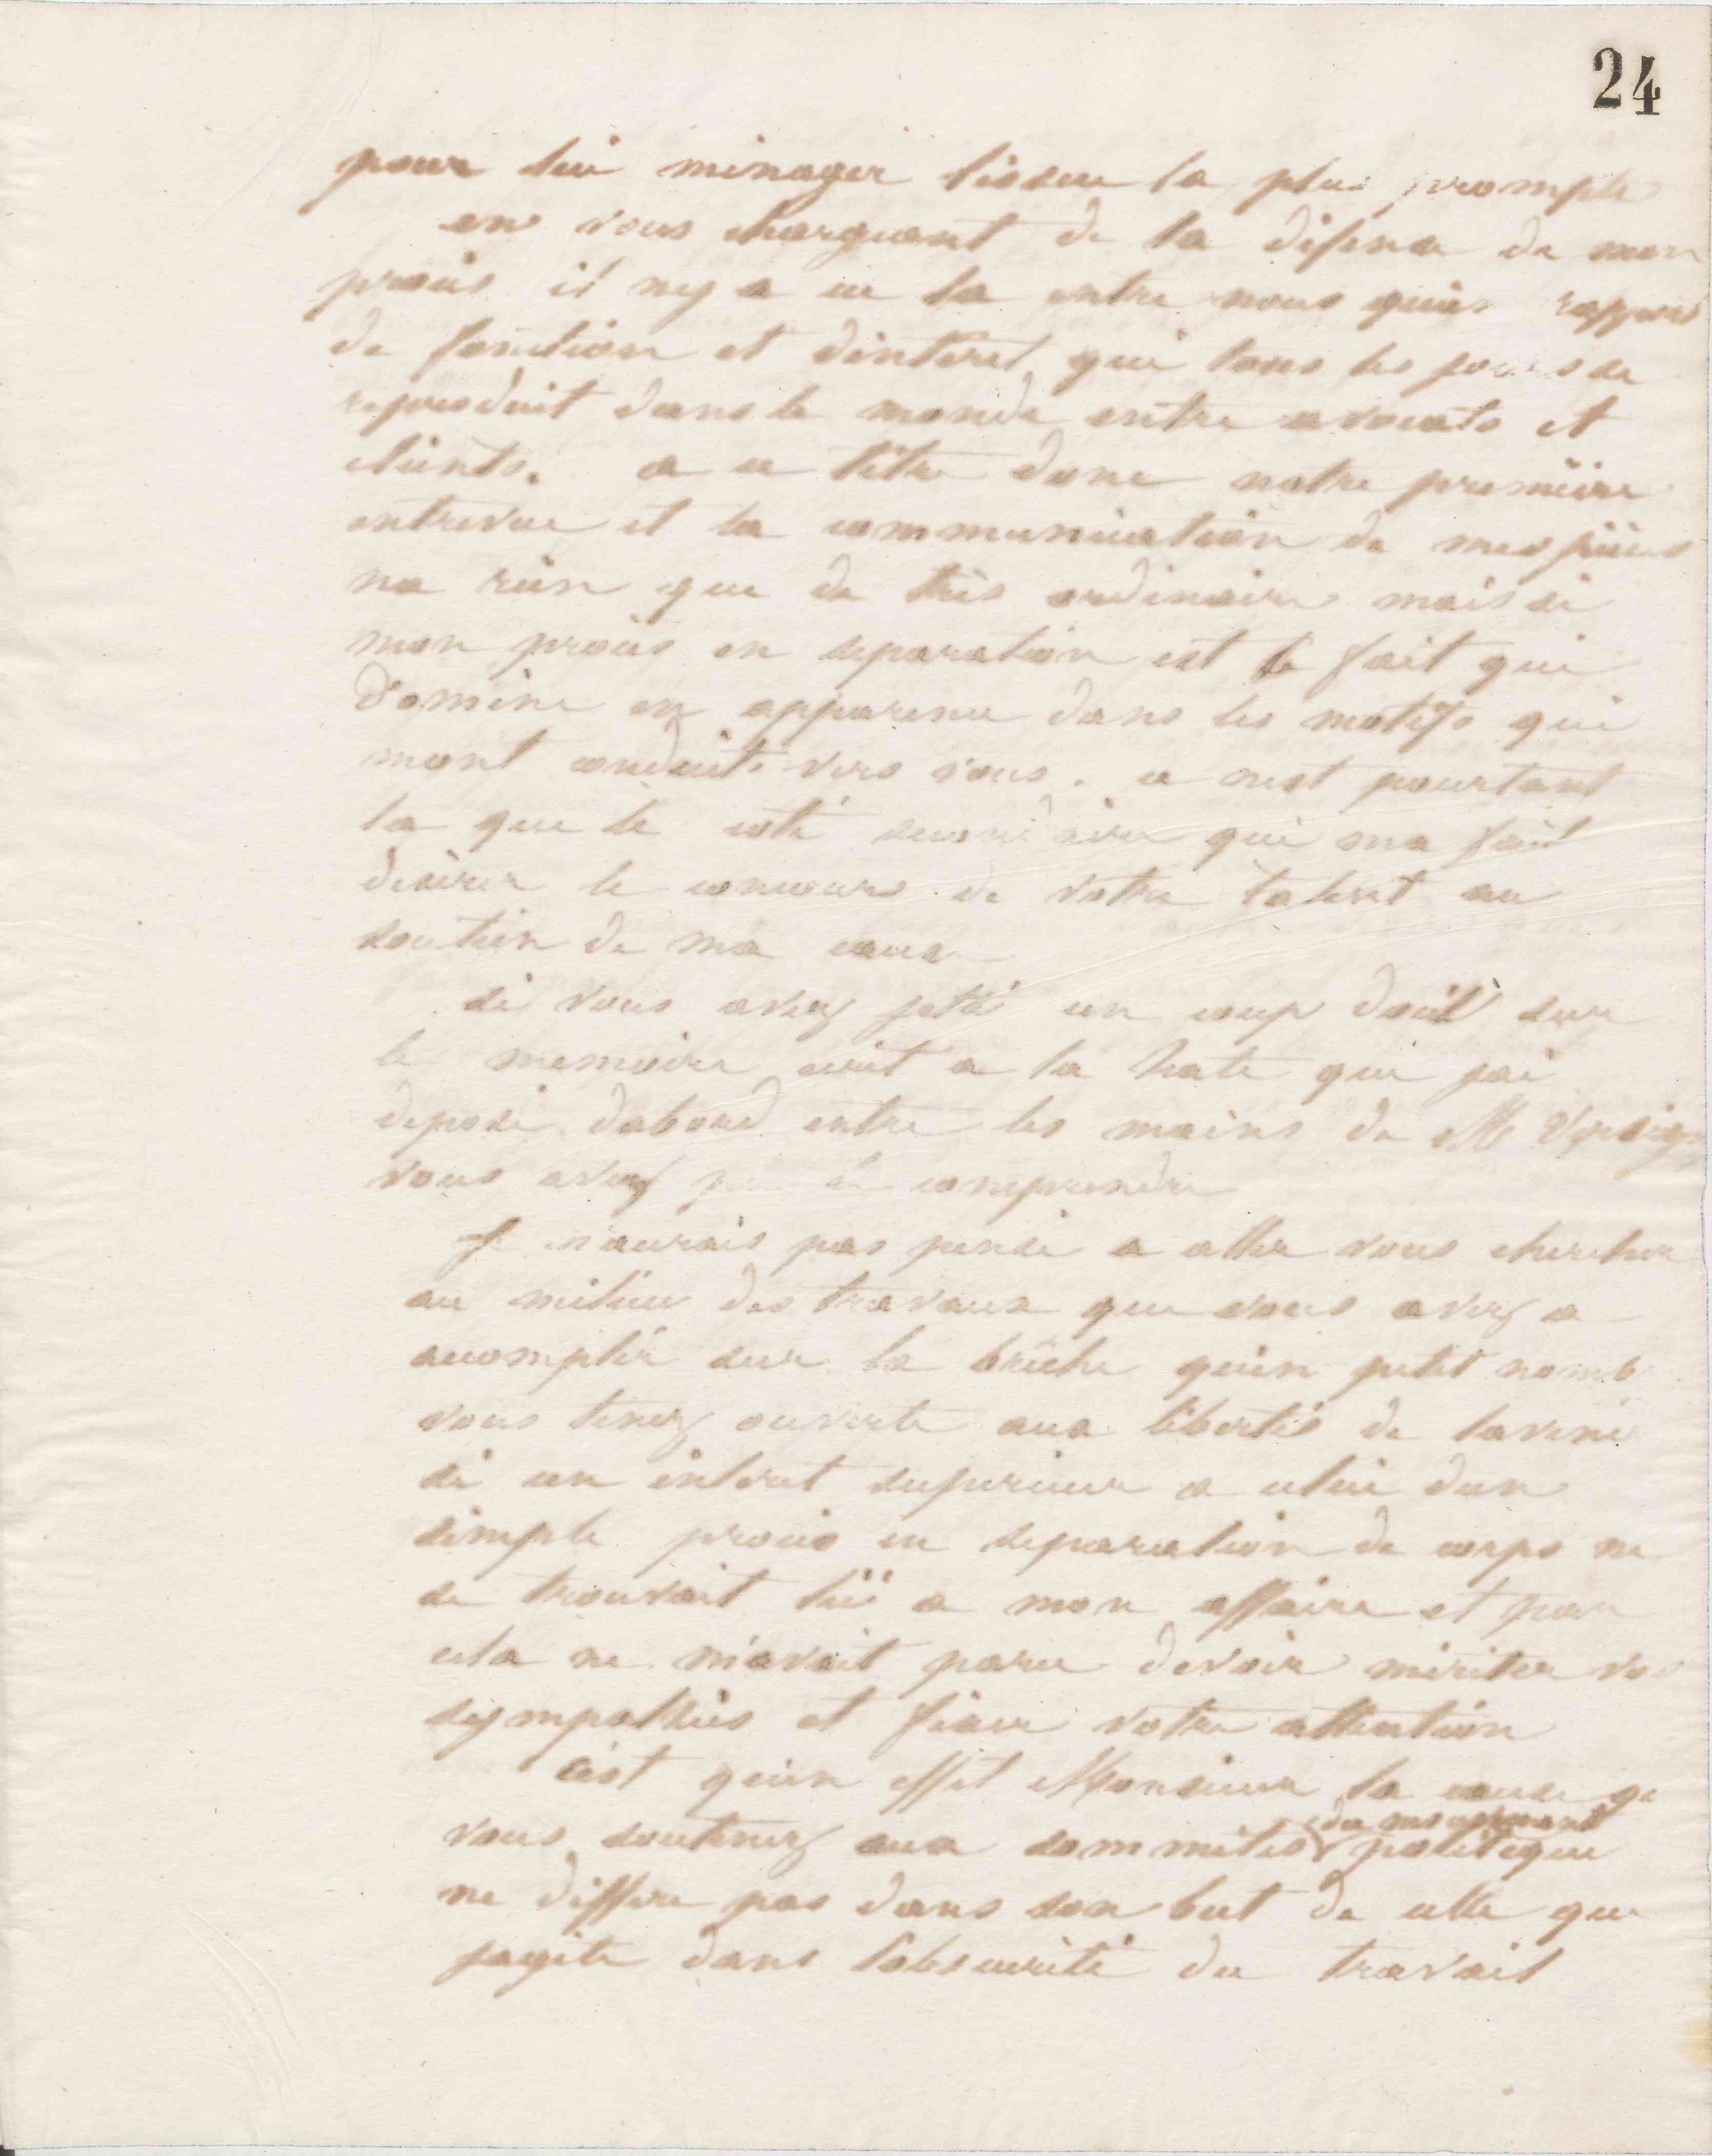 24
pour lui menager lissue la plus prompte
en vous chargeant de la défense de mon
procès il ny a eu la entre nous quun rapport
de fonction et dintéret qui tous les jours se
reproduit dans le monde entre avocats et
clients. a ce titre donc notre première
entrevue et la communication de mes pièces
na rien que de très ordinaire mais si
mon procès en separation est le fait qui
domine en apparence dans les motifs qui
mont conduits vers vous. ce nest pourtant
la que le coté secondaire qui ma fait
désirer le concours de votre talent au
soutien de ma cause
si vous avez jetté un coup doeil sur
le memoire ecrit a la hate que jai
deposé dabord entre les mains de Mr
vous avez pu le comprendre
Je naurais pas pensé a aller vous chercher
au milieu des travaux que vous avez a
accomplir sur la brèche quen petit nomb
vous tenez ouverte aux libertés de laveni
si un intéret superieur a celui dun
simple procès en separation de corps ne
se trouvait lié a mon affaire et par
cela ne m'avait paru devoir mériter vos
sympathies et fixer votre attention
cest quen effet Monsieur la cause qe
vous soutenez aux sommités du mouvement politique
ne differe pas dans son but de celle que
jagite dans l'obscurité du travail